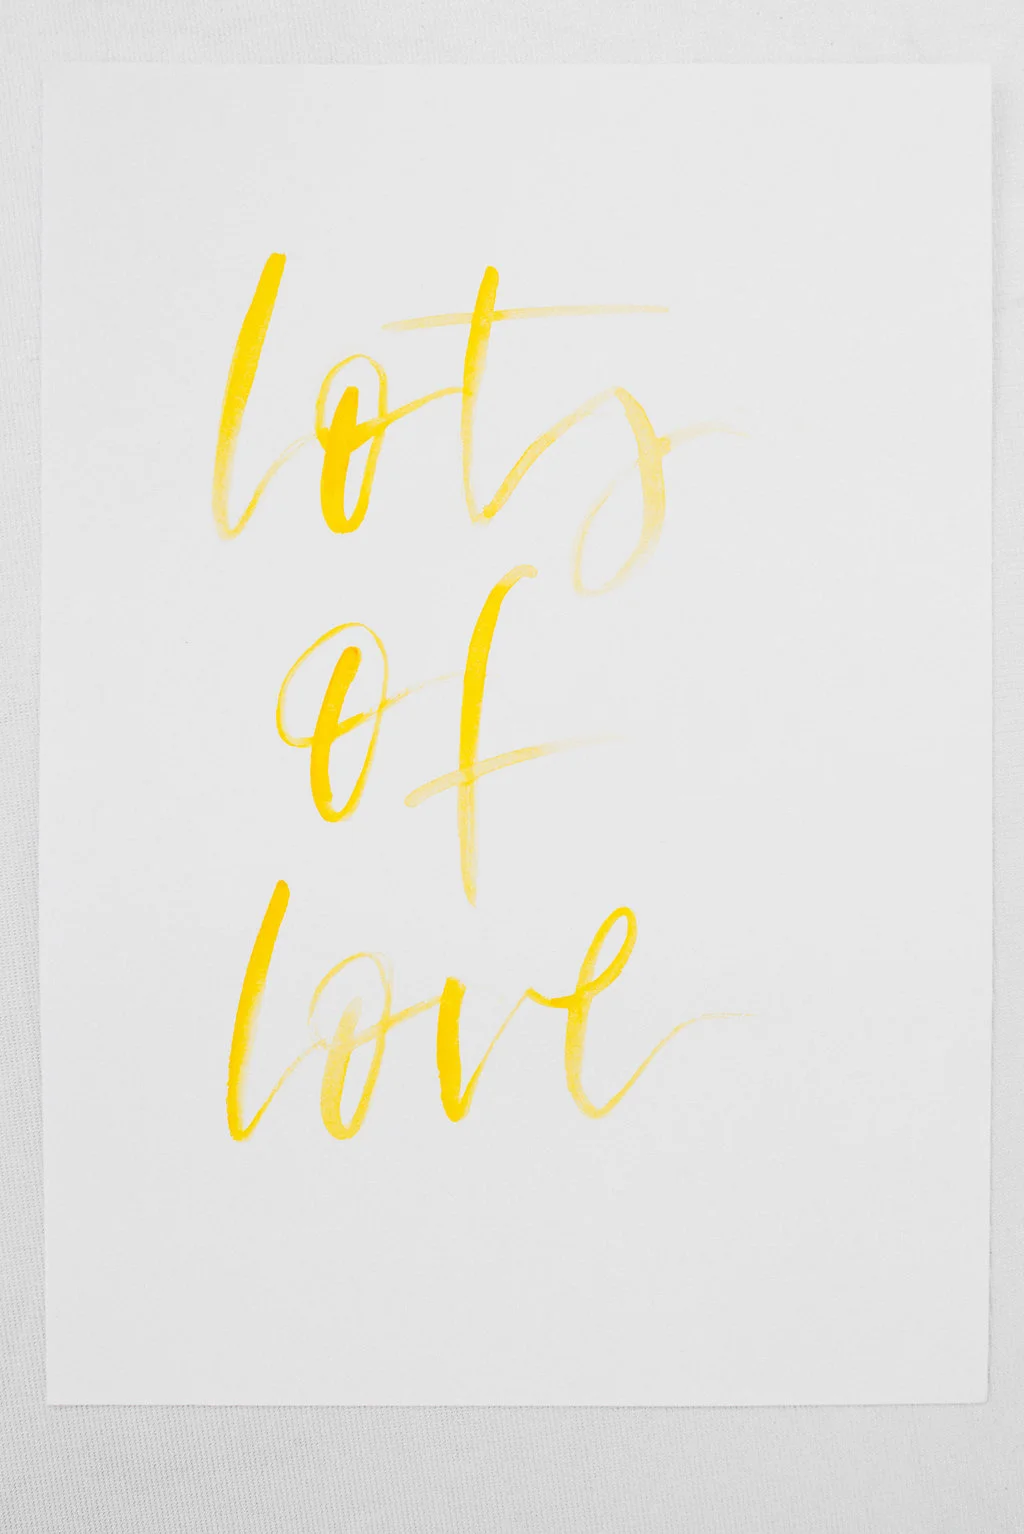 lots
of
love